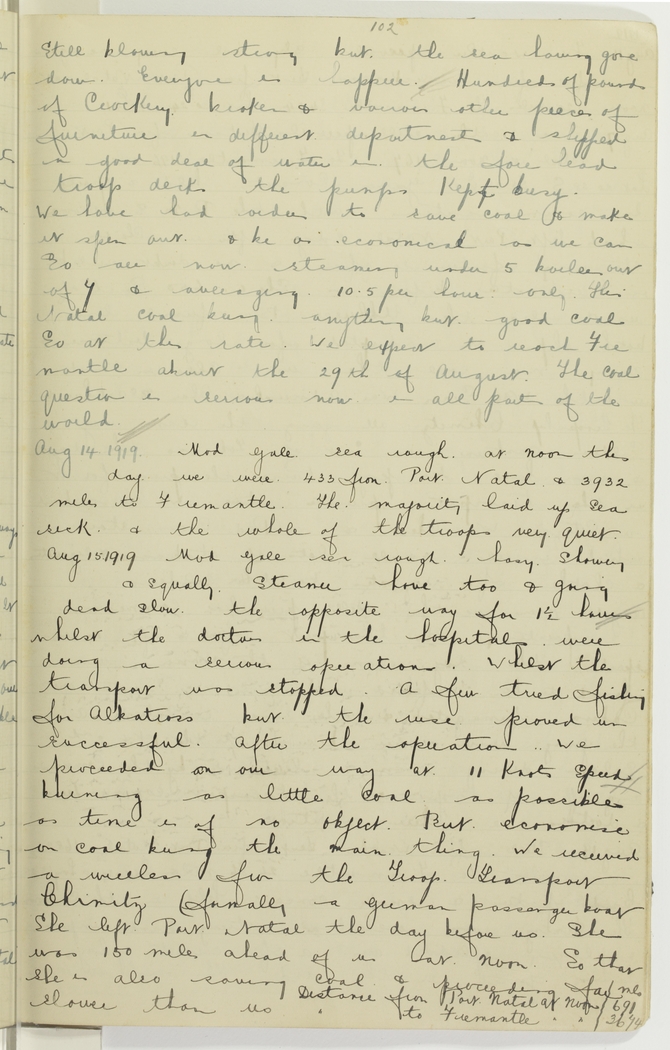 102
Still blowing strong but the sea having gone
down. Everyone is happier. Hundreds of pounds
of Crockery broken & various other pieces of
furniture in different department & shipped
a good deal of water in the fore head
troop decks the pumps Kept busy.
We have had orders to save coal & make
it spin out. & be as economical as we can
So are now steaming under 5 boilers out
of 7 & averaging 10.5 per hour only. This
Natal coal being anything but good coal
So at this rate. We expect to reach Free
mantle about the 29th of August. The Coal
question is serious now in all parts of the
world.
Aug 14 1919. Mod gale sea rough. at noon this
day we were 433 from Port Natal & 3932
miles to Fremantle. The majority laid up sea
sick. & the whole of the troops very quiet.
Aug 15 1919 Mod gale sea rough. hazy. Showery
& Squally. Steamer hove too & going
dead slow. the opposite way for 1½ hours
whilst the doctors in the hospital were
doing a serious operation. Whilst the
transport was stopped. A few tried fishing
for Alkatross but the ruse proved un
successful. After the operation.. We
proceeded on our way at 11 Knots Speed
burning as little coal as possible
as time is of no object. But economise
on coal being the main thing. We received
a wireless from the Troop Transport
(formally a german passenger boat
She left Port Natal the day before us. She
was 150 miles ahead of us at noon. So that
she is also saving coal & proceeding far
slower than us
Distance from Port Natal at noon 691 mls
" to Fremantle " " 3674